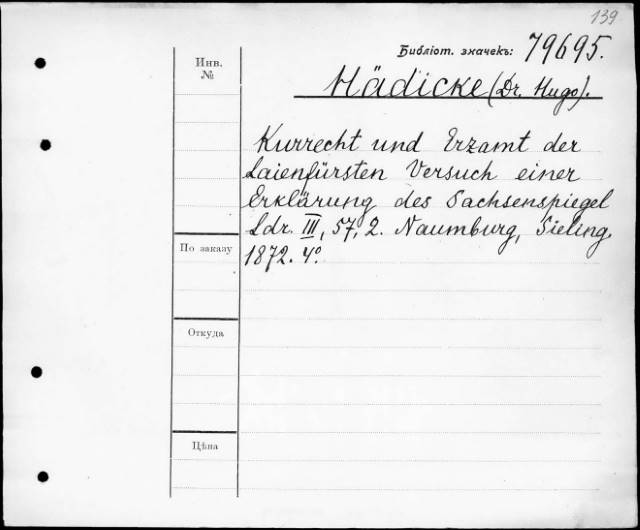 139
Библіот. значекъ: 79695.
Инв.
№
Hädicke (Dr. Hugo).
Kurrecht und Erzamt der
Laienfürsten Versuch einer
Erklärung des Sachsenspiegel
Ldr. III, 57, 2. Naumburg, Sieling,
1872. 4°.
По заказу
Откуда
Цѣна